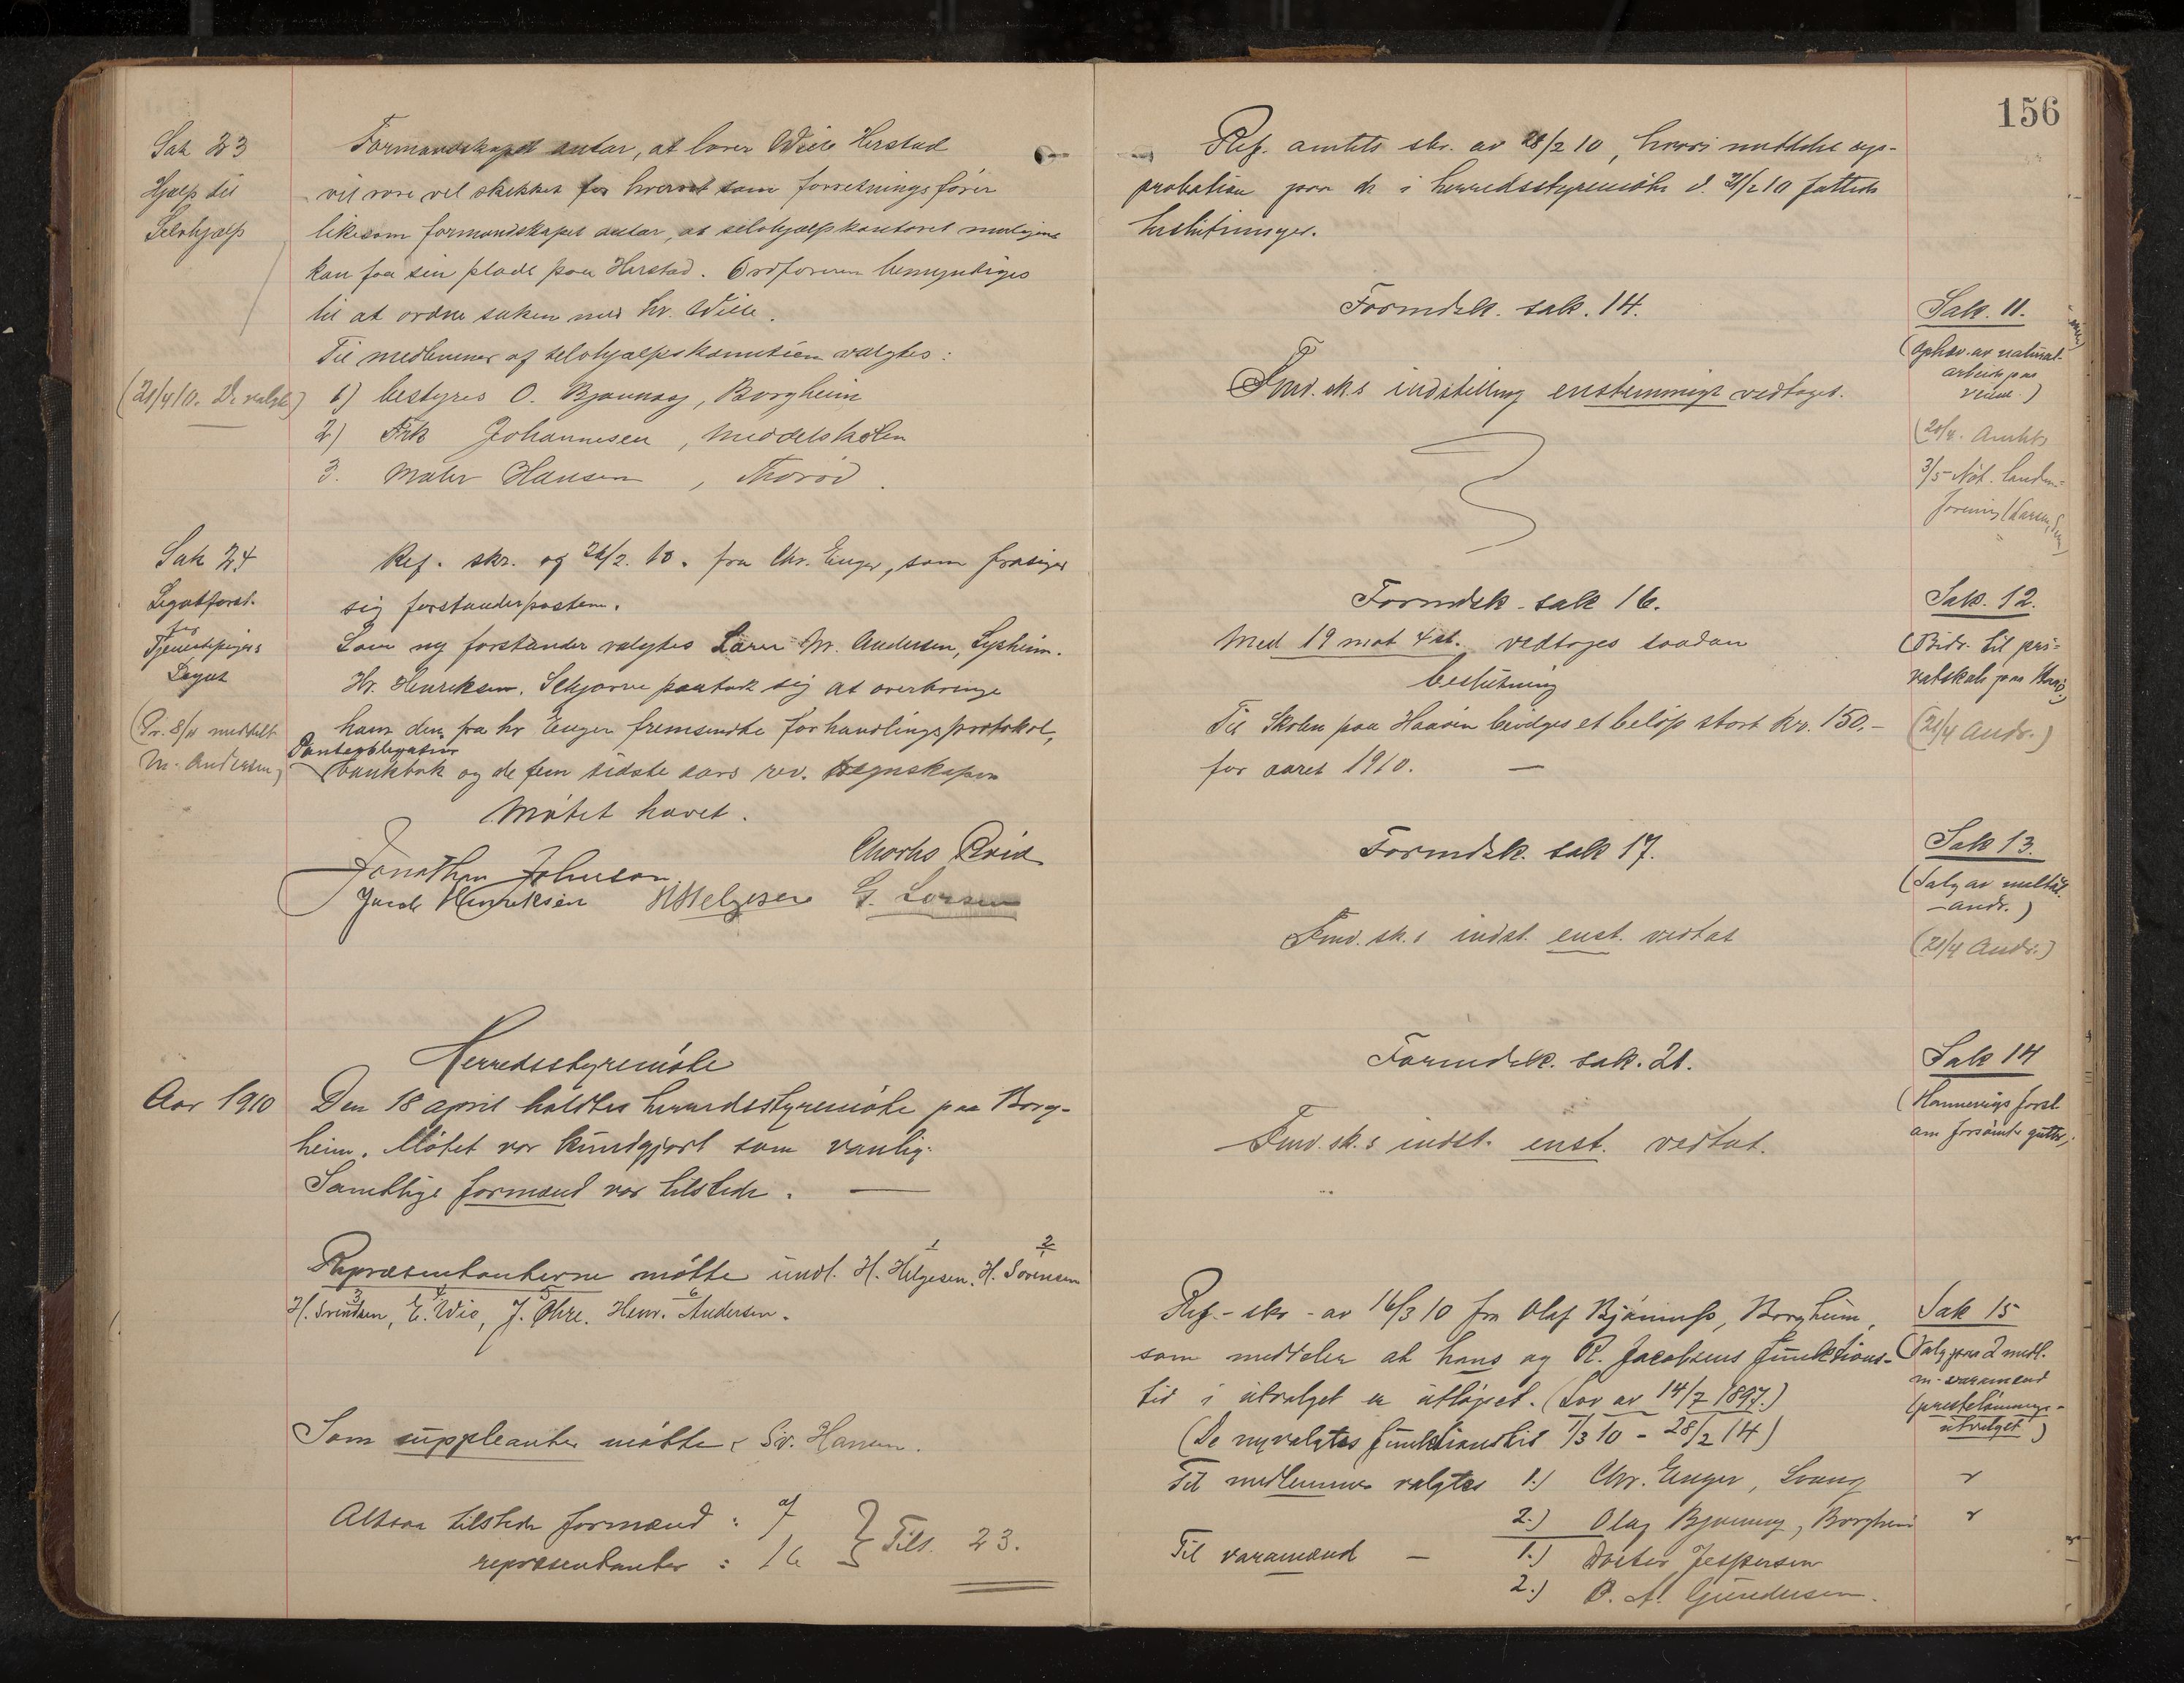 Sak 23
Hjælp til
Selvhjælp
Formandskapet antar, at lærer Wiele Herstad
vil være vel skikket for hvervet som forretningsfører
likesom formandskapet antar, at selvhjælpkontoret muligens
kan faa sin plads paa Herstad. Ordføreren bemyndiges
til at ordne saken med hr. Wiele.
Til medlemmer af selvhjælpskomiteen valgtes:
(21/4 10. De valgte)
1) bestyrer O. Bjønness, Borgheim
2) Frk Johannesen, Middelskolen
3. Maler Hansen, Thorød.
Sak 24
Legatforst.
for
Tjenestepigers
Legat
(Pr. 8/4 meddelt
M. Andersen)
Ref. skr. og 26/2. 10. fra Chr. Enger, som frasiger
sig forstanderposten.
Som ny forstander valgtes Lærer M. Andersen, Lysheim.
Hr. Henriksen. Skjerve paatok sig at overbringe
ham den fra hr Enger fremsendte forhandlingsprotokol,
Panteobligation
bankbok og de fem sidste aars rev. regnskaper
Møtet hævet.
Jonathan Johnson
Chorhs Qvid
Jacob Henriksen HHelgesen G. Larsen
Herredsstyremøte
Aar 1910
Den 18 april holdtes herredsstyremøte paa Borg-
heim. Møtet var kundgjort som vanlig.
Samtlige formænd var tilstede. —
Repræsentanterne møtte undt. H. Helgesen 1, H. Sørensen 2
H. Svendsen 3, E. Wis 4, J. Øhre 5. Henr. Andersen 6.
Som suppleanter møtte: Sv. Hansen.
Altsaa tilstede formænd: 7
repræsentanter: 16 } Tils. 23.
156
Ref. amtets skr. av 28/2 10, hvori meddeles ap-
probation paa de i herredsstyremøte d. 21/2 10 fattede
beslutninger.
Formdsk. sak. 14.
Sak. 11.
(Ophæv. av natural-
arbeide paa
veiene.)
Fmd.sk.s indstilling enstemmigt vedtaget.
(20/4. Amtets
3/5 Nøt. landm-
forening (Larsen, Sem)
Formdsk. sak 16.
Sak. 12.
(Bidr. til pri-
vatskole paa Haav.)
(21/4 Andr.)
Med 19 mot 4 st. vedtoges saadan
beslutning
Til Skolen paa Haavin bevilges et beløp stort kr. 150.-
for aaret 1910. —
Formdsk. sak 17.
Sak 13.
(Salg av melkøl
- andr.)
(21/4 Andr.)
Fmd.sk.s indst. enst. vedtat
Formdsk. sak. 21.
Sak 14
(Hannevigs forsl.
om forsømte gutter)
Fmd.sk.s indst. enst. vedtat.
Sak 15
(Valg paa 2 medl.
m. varamænd
(prestelønnings-
utvalget)
Ref. - skr - av 16/3 10 fra Olaf Bjønness, Borgheim,
som meddeler at hans og R. Jacobsens funktions-
tid i utvalget er utløpet. (Lov av 14/7 1897.)
(De nyvalgtes funktionstid 1/3 10 - 28/2 14)
Til medlemmer valgtes 1.) Chr. Enger, Svang
2.) Olaf Bjønness, Borgheim
Til varamænd — 1.) Doktor Jespersen
2.) B. A. Gundersen.